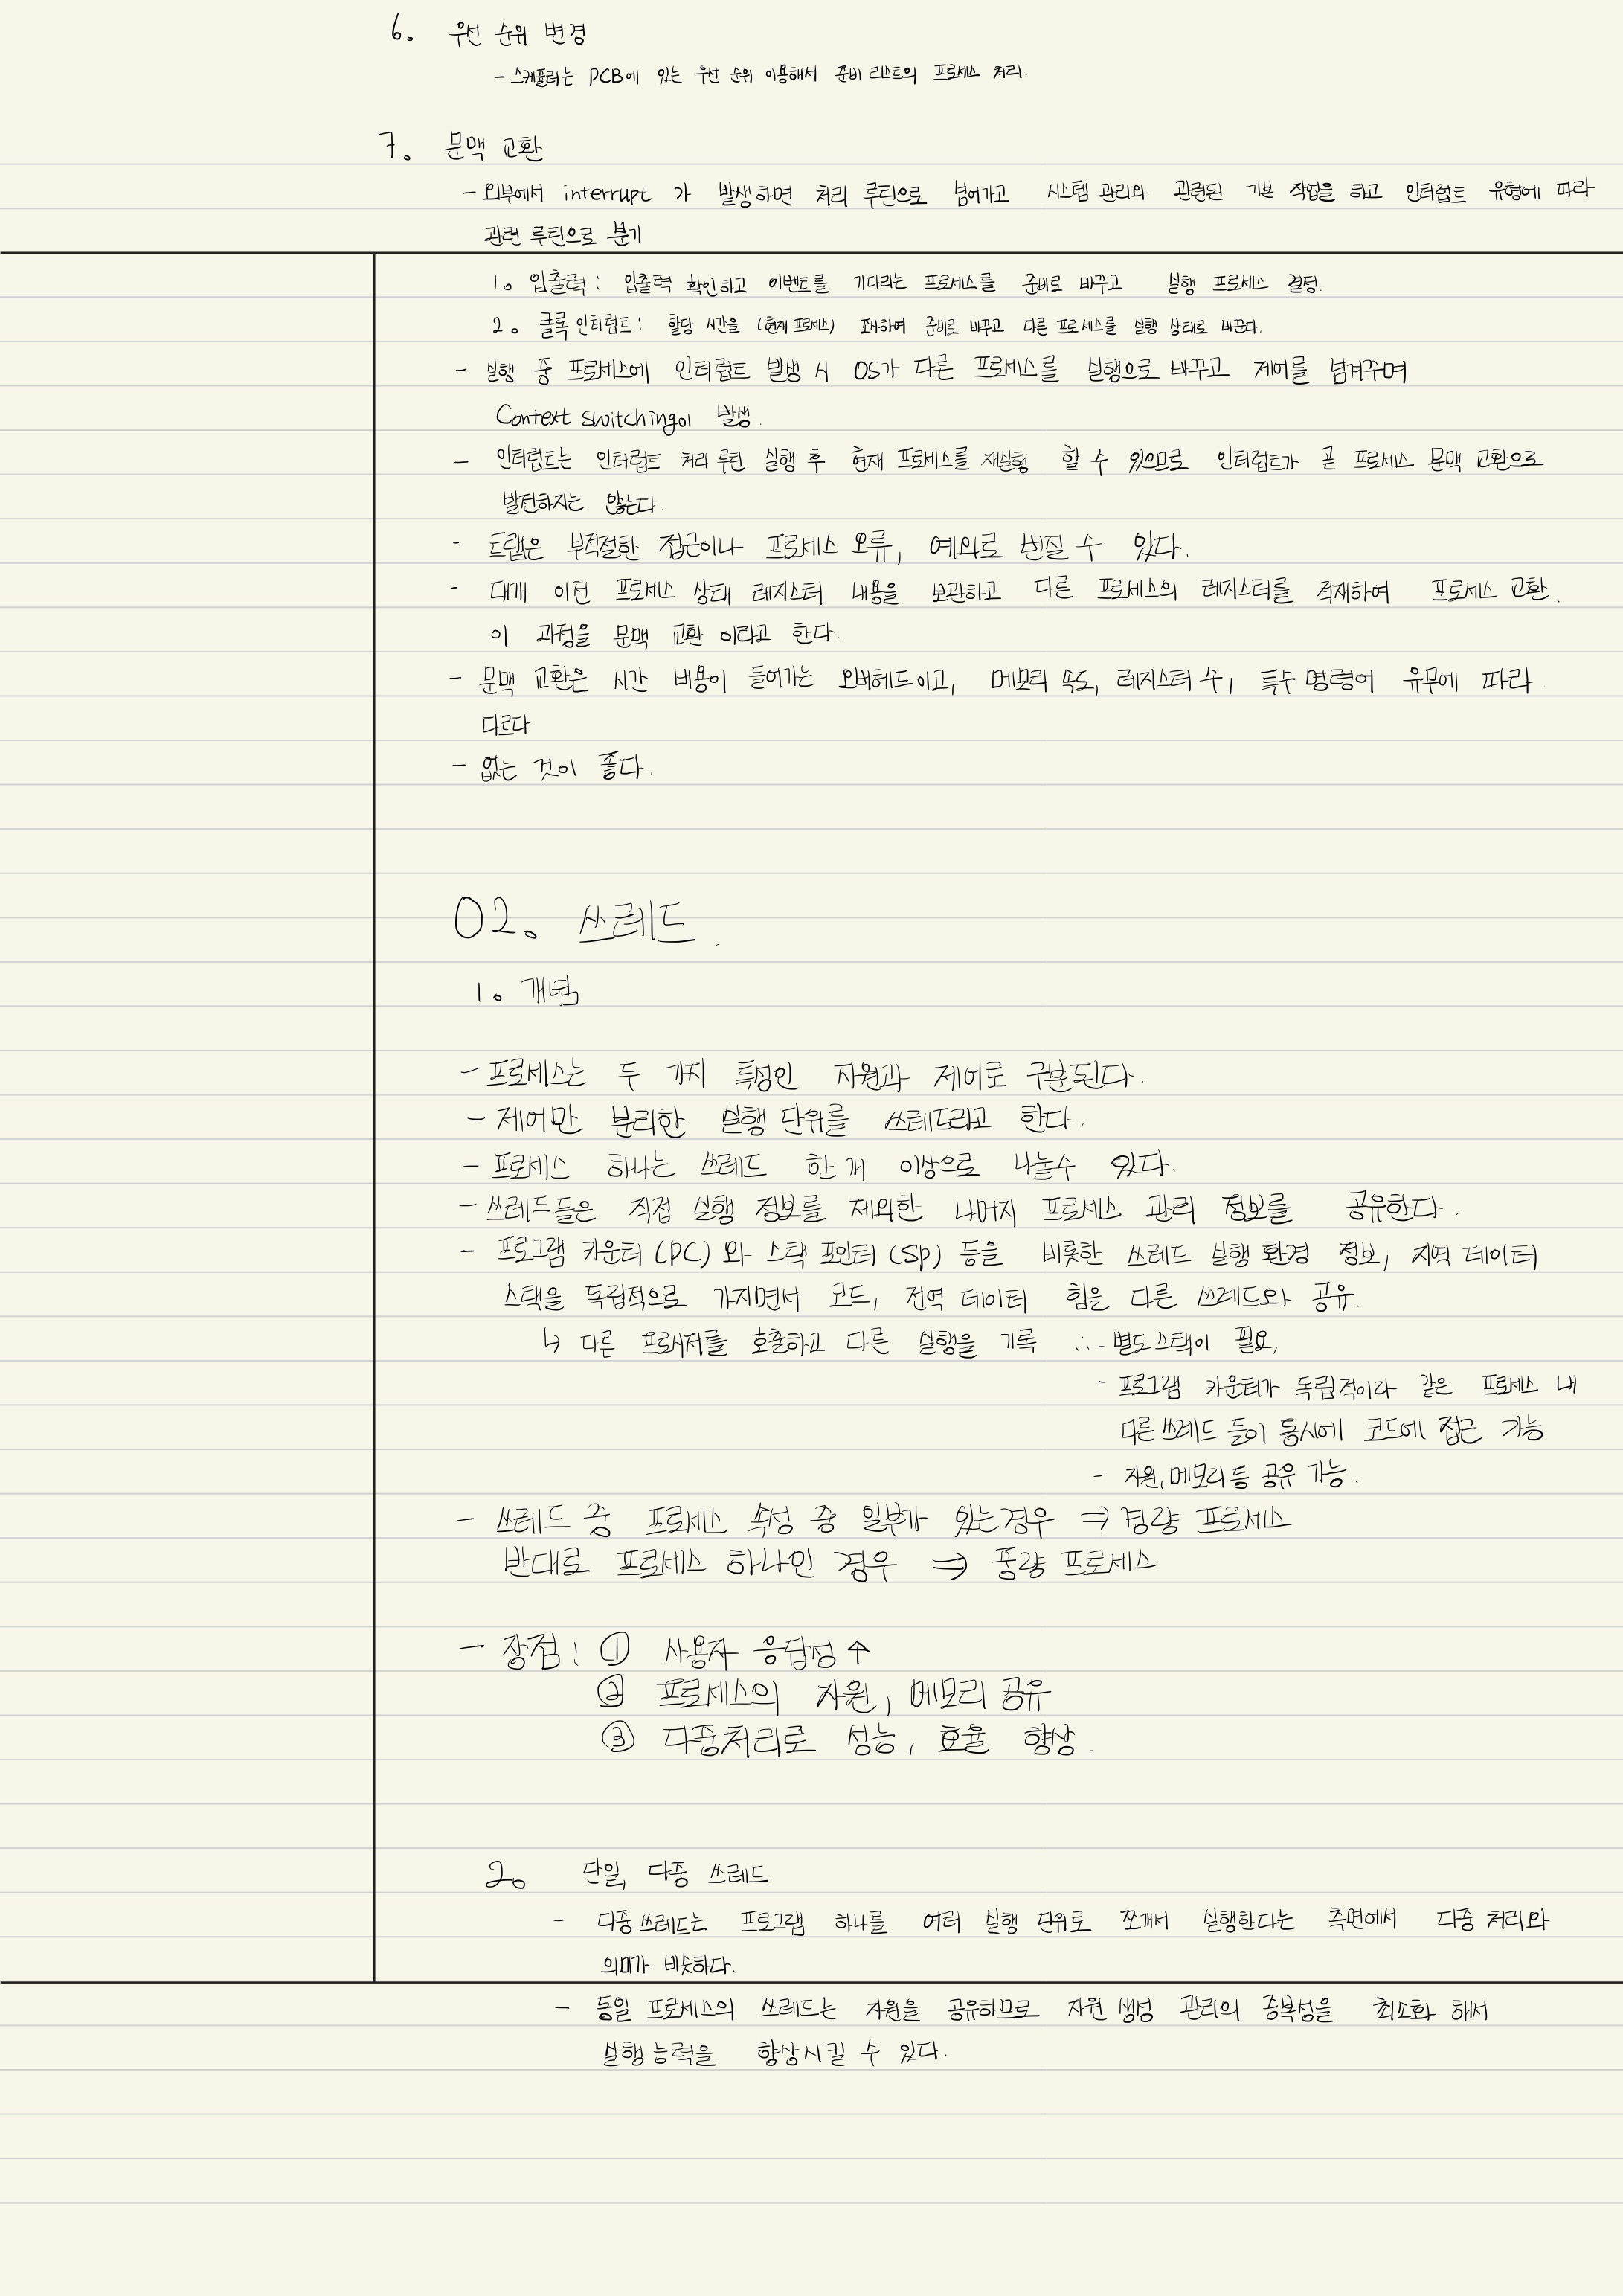 6. 우선 순위 변경
- 스케쥴러는 PCB에 있는 우선 순위 이용해서 준비 리스트의 프로세스 처리.
7. 문맥 교환
- 외부에서 interrupt 가 발생하면 처리 루틴으로 넘어가고 시스템 관리와 관련된 기본 작업을 하고 인터럽트 유형에 따라
관련 루틴으로 분기
1. 입출력 : 입출력 확인하고 이벤트를 기다리는 프로세스를 준비로 바꾸고 실행 프로세스 결정.
2. 클록 인터럽트 : 할당 시간을 (현재 프로세스) 조사하여 준비로 바꾸고 다른 프로세스를 실행 상태로 바꾼다.
- 실행 중 프로세스에 인터럽트 발생 시 OS가 다른 프로세스를 실행으로 바꾸고 제어를 넘겨주며
Context switching이 발생.
- 인터럽트는 인터럽트 처리 루틴 실행 후 현재 프로세스를 재실행 할 수 있으므로 인터럽트가 곧 프로세스 문맥 교환으로
발전하지는 않는다.
- 트랩은 부적절한 접근이나 프로세스 오류, 예외로 번질 수 있다.
- 대개 이전 프로세스 상태 레지스터 내용을 보관하고 다른 프로세스의 레지스터를 적재하여 프로세스 교환.
이 과정을 문맥 교환 이라고 한다.
- 문맥 교환은 시간 비용이 들어가는 오버헤드이고, 메모리 속도, 레지스터 수, 특수 명령어 유무에 따라
다르다
- 없는 것이 좋다.
02. 쓰레드
1. 개념
- 프로세스는 두 가지 특성인 자원과 제어로 구분된다.
- 제어만 분리한 실행 단위를 쓰레드라고 한다.
- 프로세스 하나는 쓰레드 한 개 이상으로 나눌수 있다.
- 쓰레드들은 직접 실행 정보를 제외한 나머지 프로세스 관리 정보를 공유한다.
- 프로그램 카운터 (PC) 와 스택 포인터 (SP) 등을 비롯한 쓰레드 실행 환경 정보, 지역 데이터
스택을 독립적으로 가지면서 코드, 전역 데이터 힙을 다른 쓰레드와 공유.
↳ 다른 프로시저를 호출하고 다른 실행을 기록 ∴ - 별도 스택이 필요,
- 프로그램 카운터가 독립적이라 같은 프로세스 내
다른 쓰레드 들이 동시에 코드에 접근 가능
- 자원, 메모리 등 공유 가능.
- 쓰레드 중 프로세스 속성 중 일부가 있는 경우 ⇒ 경량 프로세스
반대로 프로세스 하나인 경우 ⇒ 중량 프로세스
- 장점 : ① 사용자 응답성 ↑
② 프로세스의 자원, 메모리 공유
③ 다중처리로 성능, 효율 향상.
2. 단일, 다중 쓰레드
- 다중 쓰레드는 프로그램 하나를 여러 실행 단위로 쪼개서 실행한다는 측면에서 다중 처리와
의미가 비슷하다.
- 동일 프로세스의 쓰레드는 자원을 공유하므로 자원 생성 관리의 중복성을 최소화 해서
실행 능력을 향상시킬 수 있다.